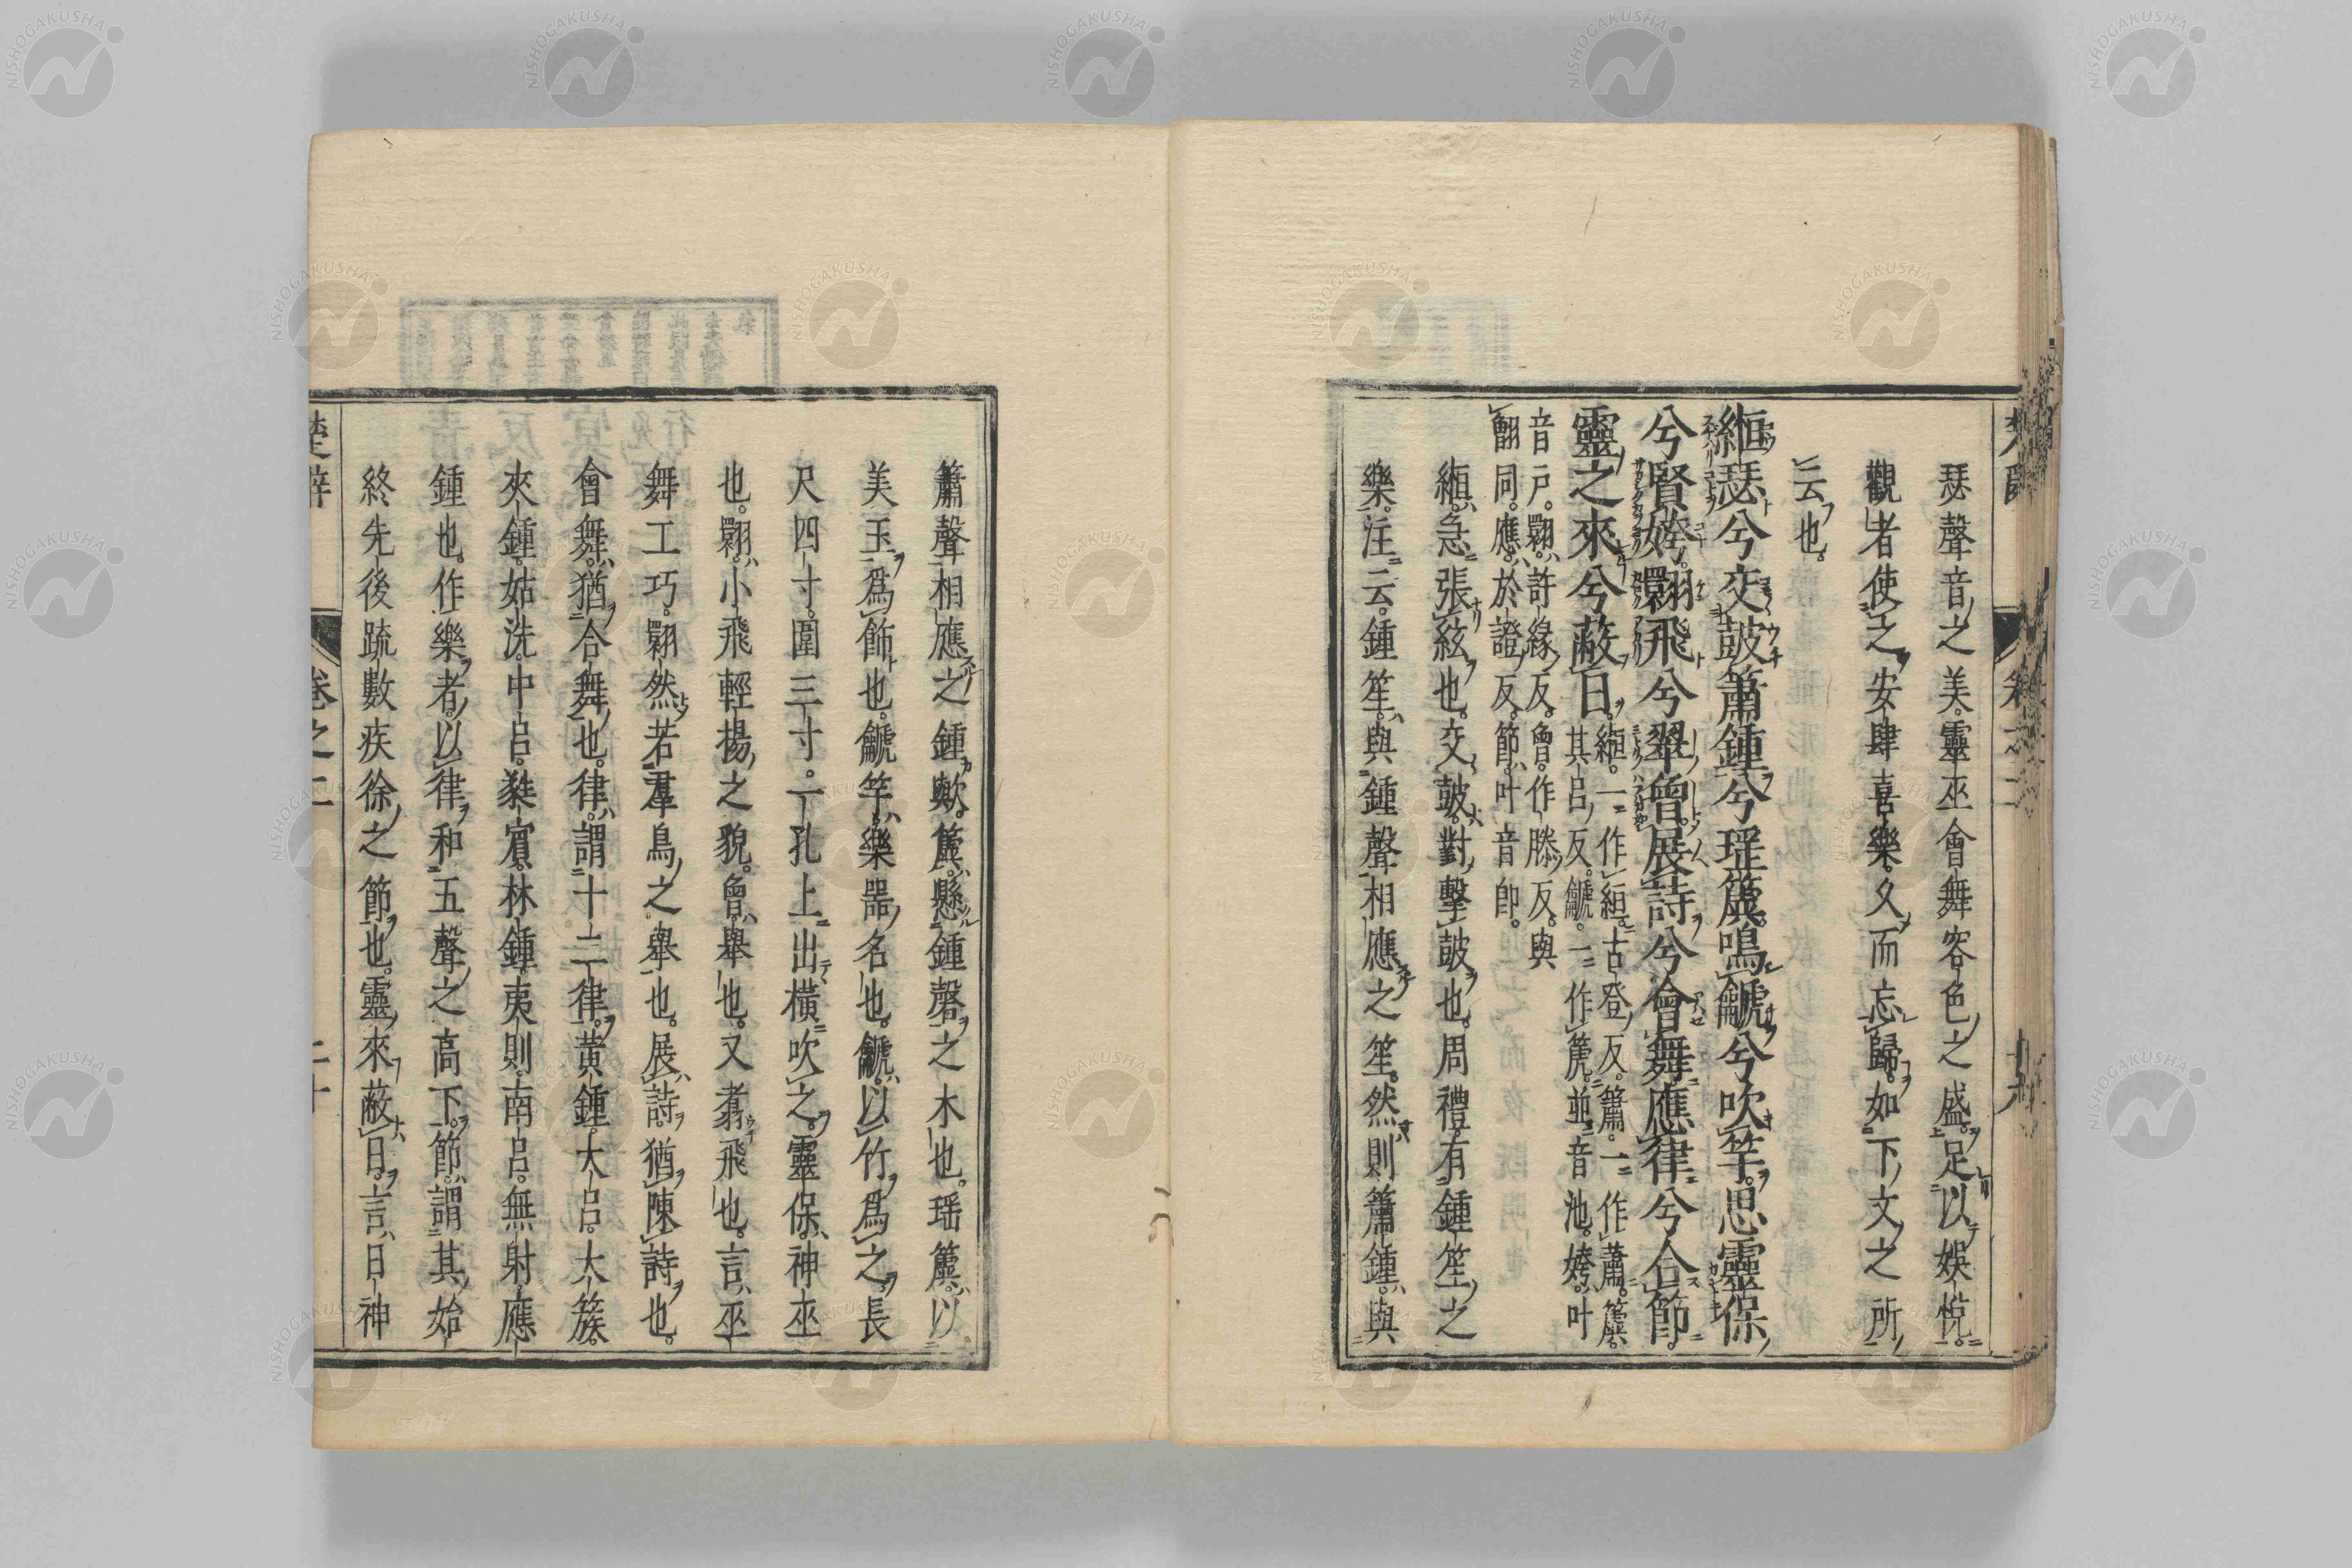 瑟聲音之美。靈巫會舞容色之盛。足以娛悅。
觀者使之安肆喜樂。久而忘歸。如下文之所
云也。
緪瑟兮交鼓簫鍾兮瑤簴。鳴鷈兮吹竽。思靈保
兮賢姱。翾飛兮翠曾。展詩兮會舞。應律兮合節。
靈之來兮蔽日。緪。一作絙。古登反。簫。一作蕭。簴。
其呂反。鷈。一作篪。並音池。姱。叶
音戸。翾。許緣反。曾。作滕反。與
䎖同。應。於證反。節。叶音卽。
緪。急張絃也。交鼓。對擊鼓也。周禮。有鍾笙之
樂。注云。鍾笙。與鍾聲相應之笙。然則簫鍾。與
簫聲相應之鍾歟。簴。懸鍾磬之木也。瑤簴。以
美玉爲飾也。竽。樂器名也。以竹爲之。長
尺四寸。圍三寸。一孔上出橫吹之。靈保。神巫
也。翾。小飛輕揚之貌。曾。舉也。又翥飛也。言巫
舞工巧。翾然若羣鳥之舉也。展詩。猶陳詩也。
會舞。猶合舞也。律。謂十二律。黄鍾。大呂。大簇。
夾鍾。姑洗。中呂。蕤賓。林鍾。夷則。南呂。無射。應
鍾也。作樂者。以律和五聲之高下。節。謂其始
終先後疏數疾徐之節也。靈來蔽日。言日神
楚辭
卷之二
二十
NISHOGAKUSHA